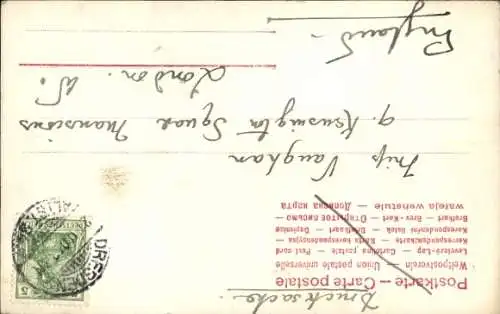 Postkarte — Carte postale
Weltpostverein — Union postale universelle
Levelező-Lap — Cartolina postale — Post card
Korrespondenzkarte — Karta korespondencyjna
Korespondenční lístek — Briefkaart — Dopisnica
Brefkort — Brev-Kort — Открытое письмо
— Дописна карта
Drucksache.
Miss Vaughan
9. Kensington Square Mansions
London. W.
England.
DRESDEN
ALTST.
5